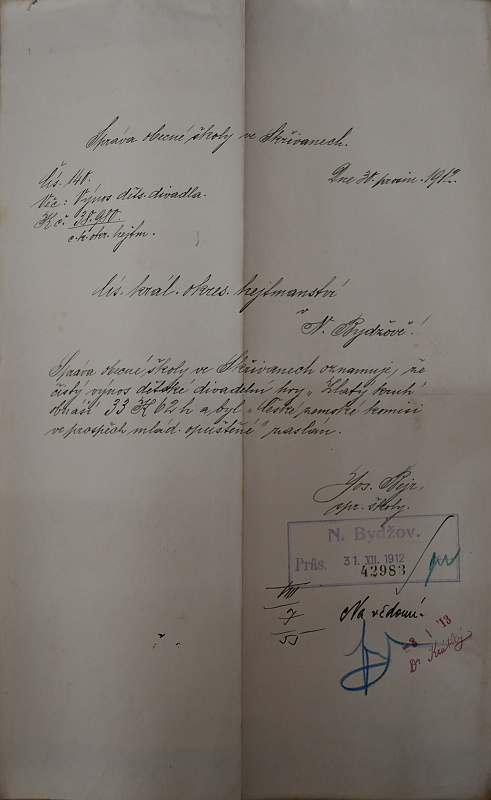 Správa obecné školy ve Skřivanech.
Čís. 140.
Dne 30. prosin. 1912.
Věc: Výnos děts. divadla.
K č. 38.910.
c. k. okr. hejtm.
Cís. král. okres. hejtmanství
v
N. Bydžově!
Správa obecné školy ve Skřivanech oznamuje, že
čistý výnos dětské divadelní hry „Zlatý kruh“
obnáší 33 K 62 h a byl „České zemské komisi
ve prospěch mlád. opuštěné“ zaslán.
Jos. Rejr,
spr. školy.
N. Bydžov.
Präs. 31. XII. 1912
42983
VIII
7
55
Na vědomí.
-3 / 1 '13
Dr Krátký